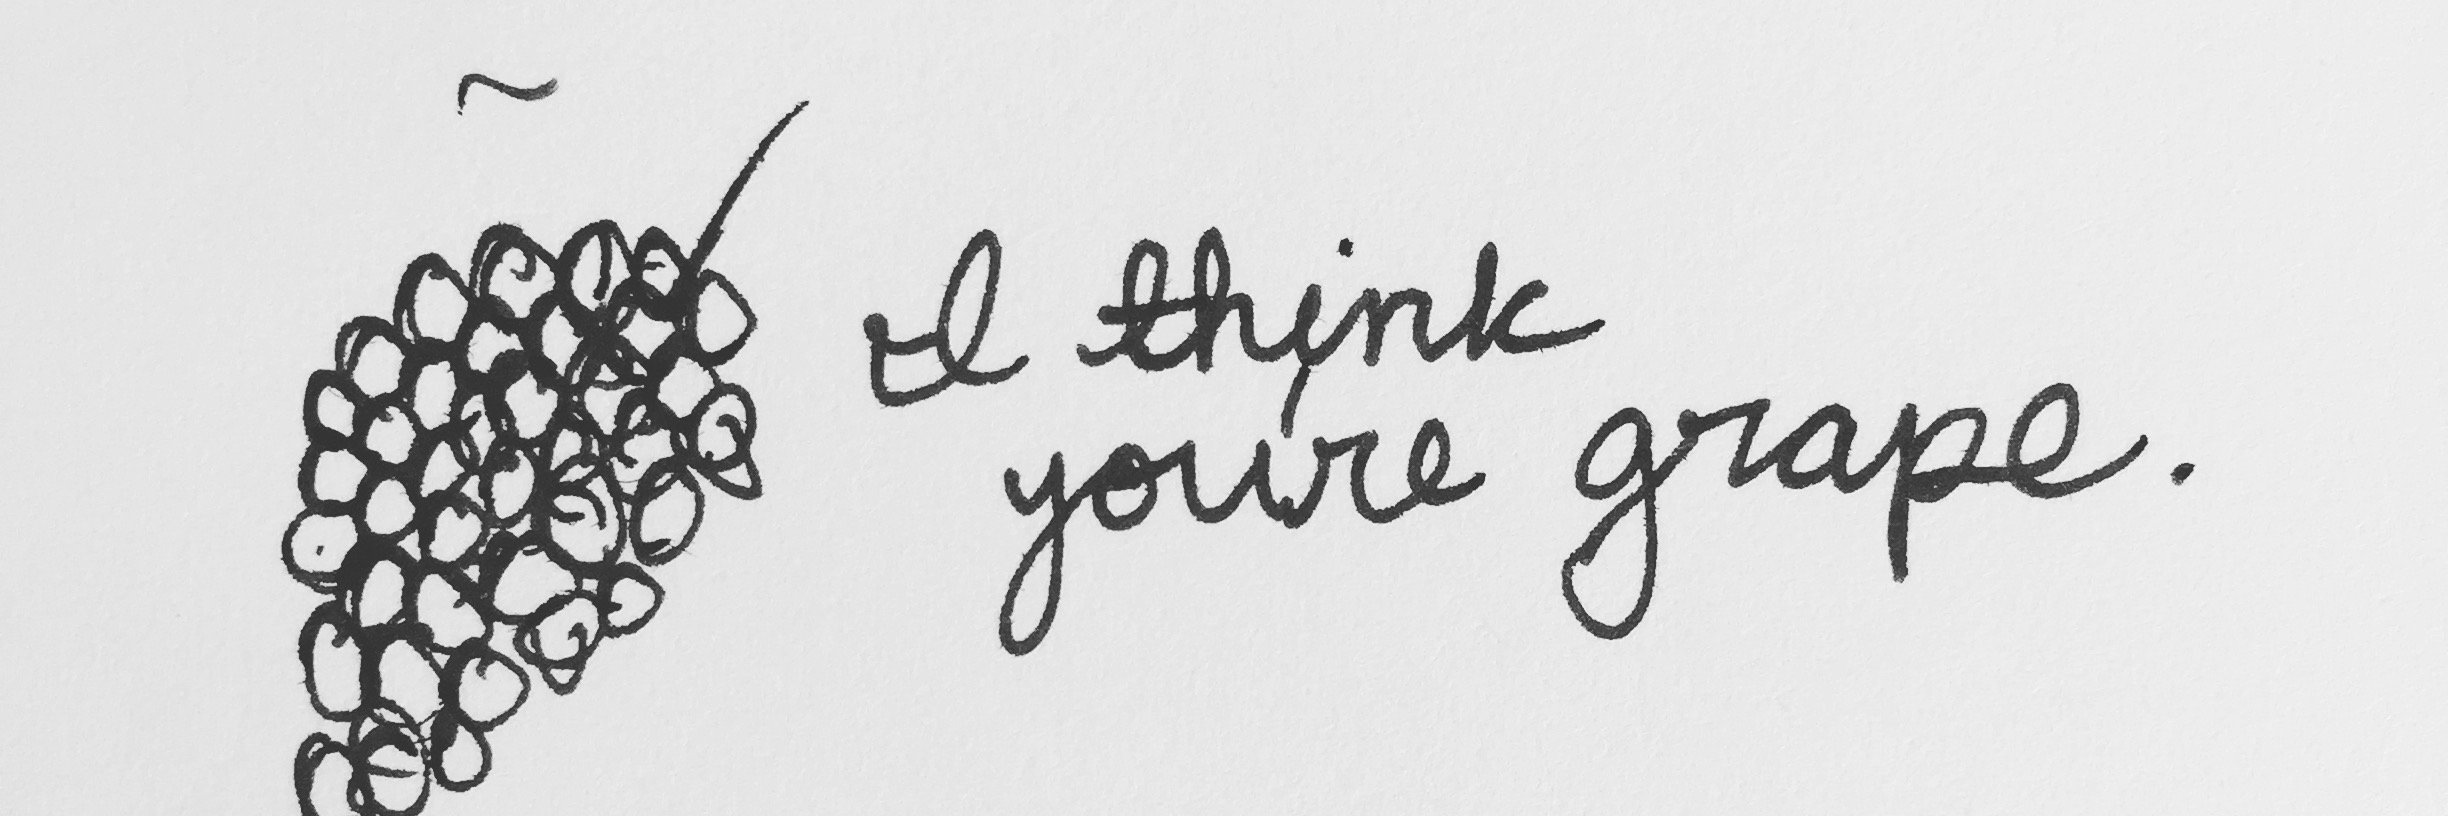 I think
you're grape.